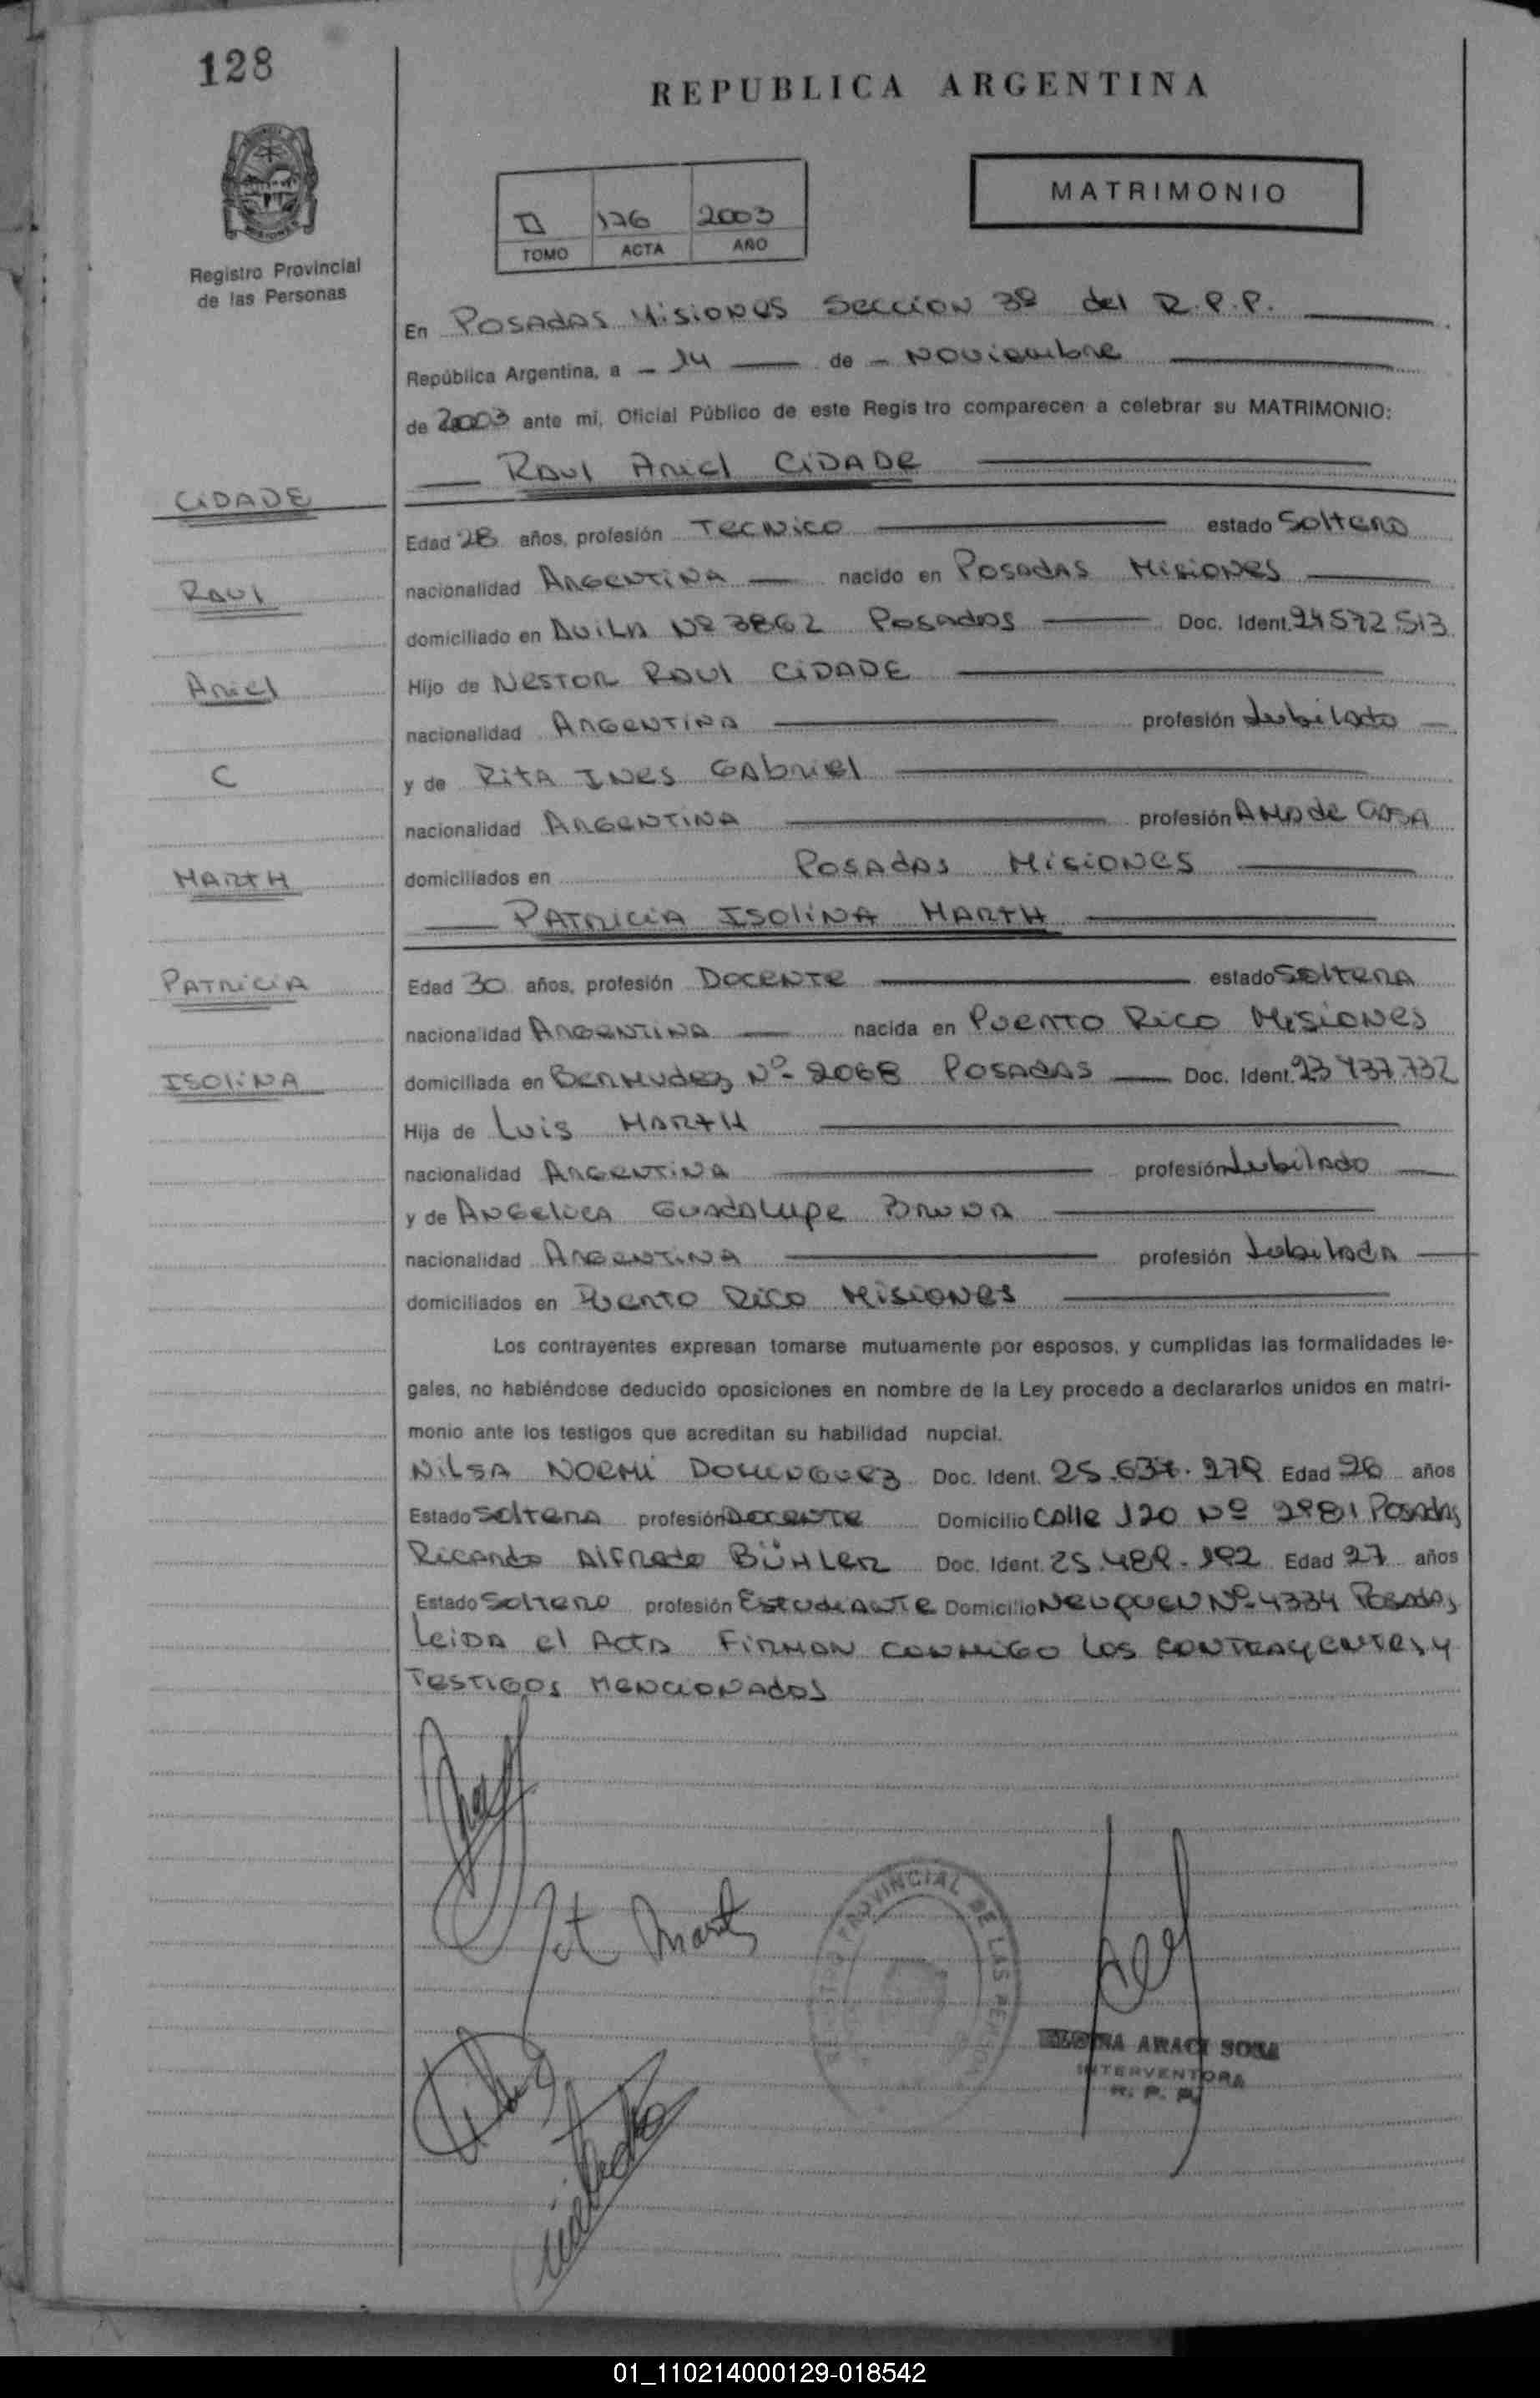 128
REPUBLICA ARGENTINA
MATRIMONIO
II 176 2003
TOMO ACTA AÑO
Registro Provincial
de las Personas
En POSADAS MISIONES SECCION 3º del R.P.P.
República Argentina, a 14 de NOVIEMBRE
de 2003 ante mí, Oficial Público de este Registro comparecen a celebrar su MATRIMONIO:
RAUL Ariel CIDADE
CIDADE
Edad 28 años, profesión TECNICO estado Soltero
RAUL
nacionalidad ARGENTINA nacido en POSADAS MISIONES
domiciliado en AVILA Nº 3862 POSADAS Doc. Ident. 24572.513
Ariel
Hijo de NESTOR RAUL CIDADE
nacionalidad ARGENTINA profesión Jubilado
C
y de RITA INES GABRIEL
nacionalidad ARGENTINA profesión AMA de CASA
MARTH
domiciliados en POSADAS MISIONES
PATRICIA ISOLINA MARTH
PATRICIA
Edad 30 años, profesión DOCENTE estado SOLTERA
nacionalidad ARGENTINA nacida en PUERTO RICO MISIONES
ISOLINA
domiciliada en BERMUDEZ Nº 2068 POSADAS Doc. Ident. 23437.732
Hija de LUIS MARTH
nacionalidad ARGENTINA profesión Jubilado
y de ANGELICA GUADALUPE BRUNA
nacionalidad ARGENTINA profesión Jubilada
domiciliados en PUERTO RICO MISIONES
Los contrayentes expresan tomarse mutuamente por esposos, y cumplidas las formalidades le-
gales, no habiéndose deducido oposiciones en nombre de la Ley procedo a declararlos unidos en matri-
monio ante los testigos que acreditan su habilidad nupcial.
NILSA NOEMI DOMINGUEZ Doc. Ident. Edad 26 años
Estado SOLTERA profesión DOCENTE Domicilio CALLE 120 Nº POSADAS
RICARDO ALFREDO BÜHLER Doc. Ident. Edad 27 años
Estado SOLTERO profesión ESTUDIANTE Domicilio NEUQUEN Nº 4334 POSADAS
LEIDA el ACTA FIRMAN CONMIGO LOS CONTRAYENTES y
TESTIGOS MENCIONADOS
PROVINCIAL DE LAS
ARACI SOSA
INTERVENTORA
R. P. P.
01_110214000129-018542